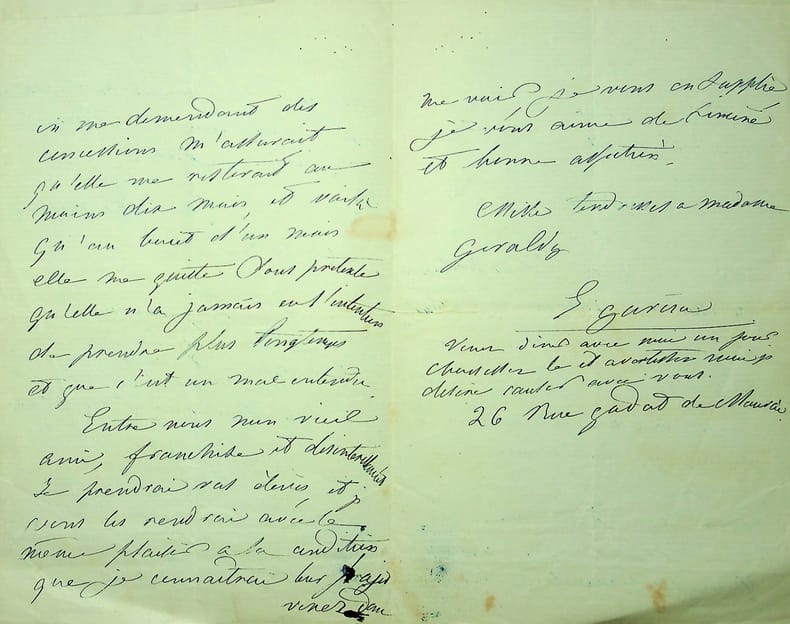 en me demandant des
concessions m'assurait
qu'elle me resterait au
moins dix mois et voila
qu'au bout d'un mois
elle me quitte sous pretexte
qu'elle n'a jamais eu l'intention
de prendre plus longtemps
et que c'est un mal entendu.
Entre nous mon vieil
ami, franchise et desinteressement
Je prendrai vos élèves, et je
vous les rendrai avec le
même plaisir a la condition
que je connaitrai leur projet
venez donc
me voir je vous en supplie
je vous aime de
et bonne affection.
Mille tendresses a madame
Geraldy
E garcia
Venez diner avec moi un jour
choisissez le et avertissez moi je
désire causer avec vous.
26 Rue godot de Mauroi